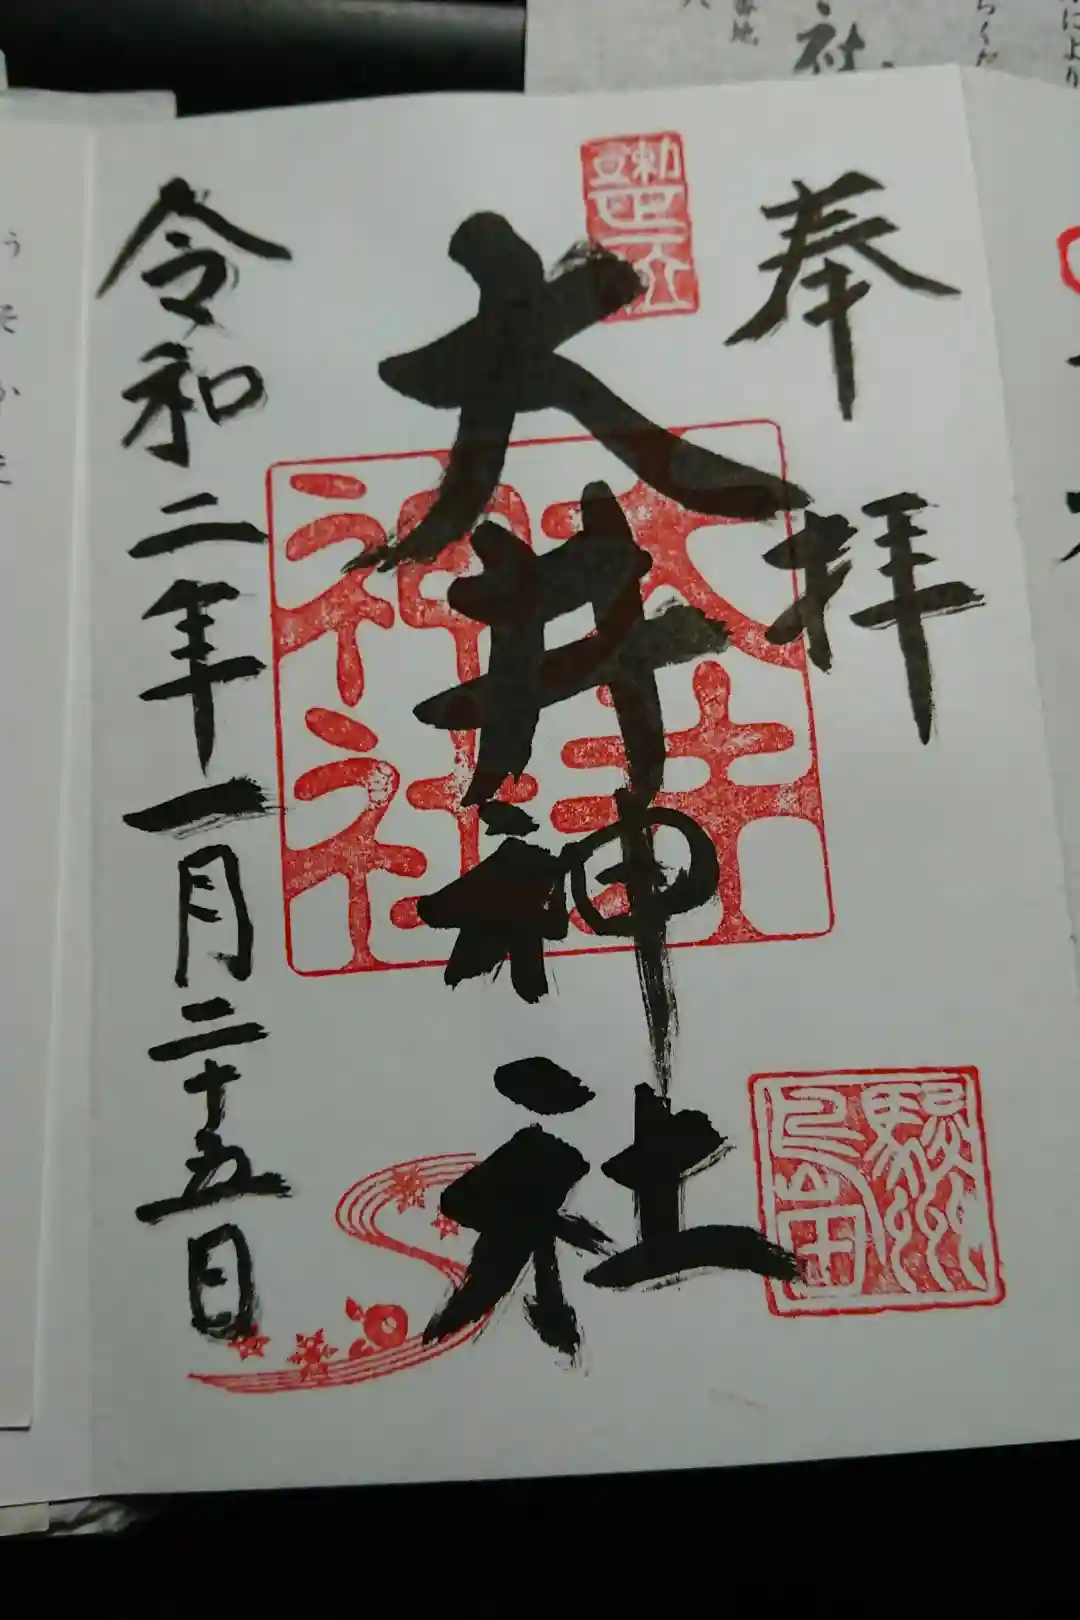 奉拝
大井神社
令和二年一月二十五日
大井神社
駿州
島田
社
番地